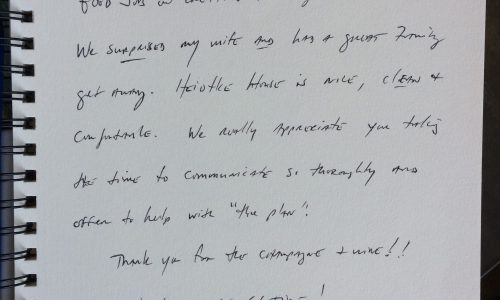 We surprised my wife and had a great family
get away. Heidtke House is nice, clean &
comfortable. We really appreciate you taking
the time to communicate so thoroughly and
offer to help with "the plan".
Thank you for the champagne & wine!!